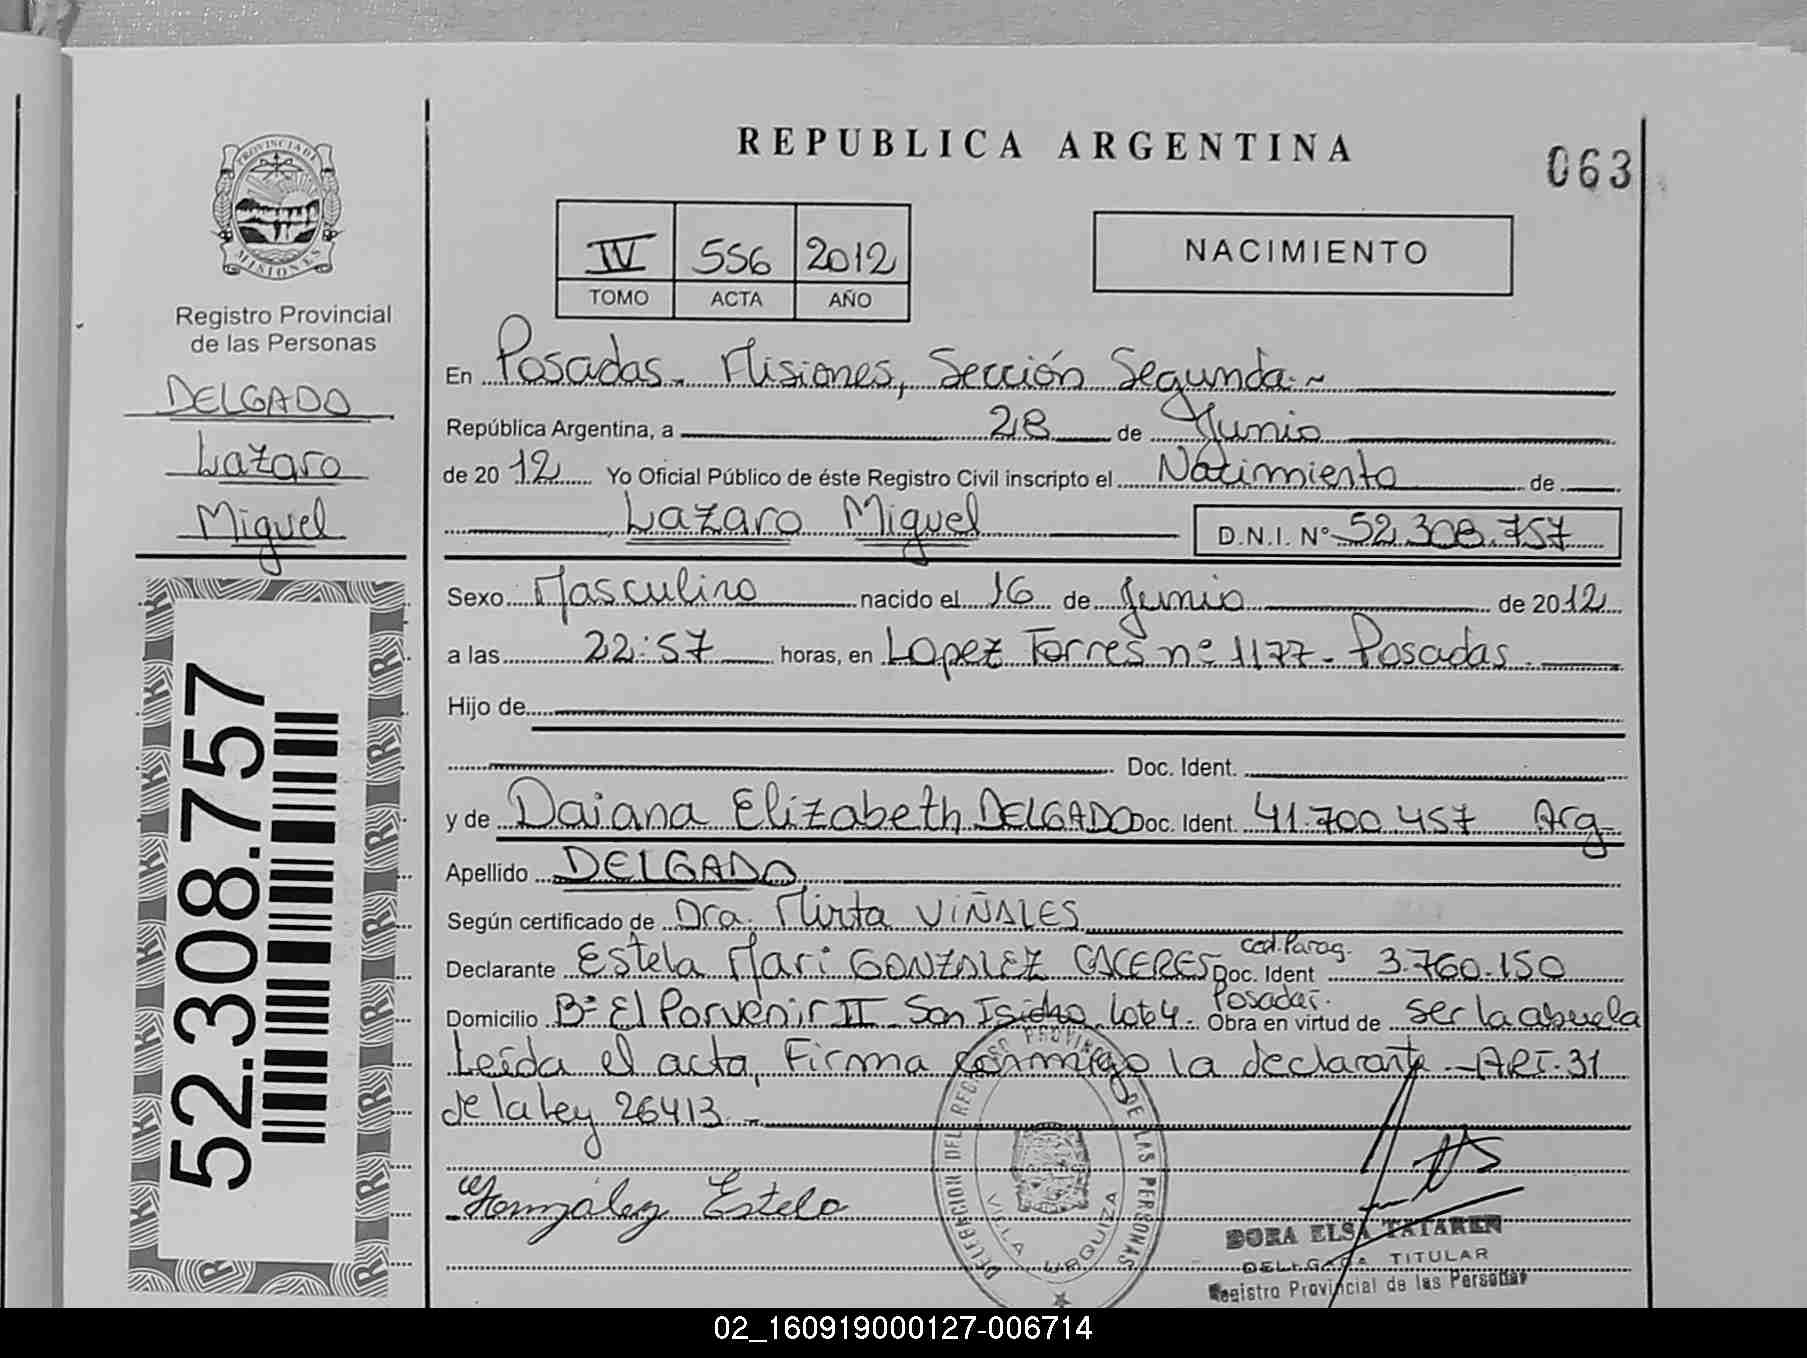 REPUBLICA ARGENTINA
063
PROVINCIA DE
MISIONES
Registro Provincial
de las Personas
DELGADO
Lazaro
Miguel
52.308.757
IV 556 2012
TOMO ACTA AÑO
NACIMIENTO
En Posadas - Misiones, Sección Segunda.~
República Argentina, a 28 de Junio
de 2012 Yo Oficial Público de éste Registro Civil inscripto el Nacimiento de
Lazaro Miguel D.N.I. Nº 52.308.757
Sexo Masculino nacido el 16 de Junio de 2012
a las 22:57 horas, en Lopez Torres nº 1177 - Posadas.
Hijo de
Doc. Ident.
y de Daiana Elizabeth DELGADO Doc. Ident. 41.700.457 Arg.
Apellido DELGADO
Según certificado de Dra. Mirta VIÑALES
Declarante Estela Mari GONZALEZ CACERES Doc. Ident Ced. Parag. 3.760.150
Domicilio Bº El Porvenir II - San Isidro - Lot 4 - Posadas. Obra en virtud de ser la abuela
Leída el acta, Firma conmigo la declarante - ART. 31
de la ley 26413.-
González Estela
DELEGACION DEL REGISTRO PROVINCIAL DE LAS PERSONAS
VILLA URQUIZA
DORA ELSA TATAREN
DELEGADA TITULAR
Registro Provincial de las Personas
02_160919000127-006714